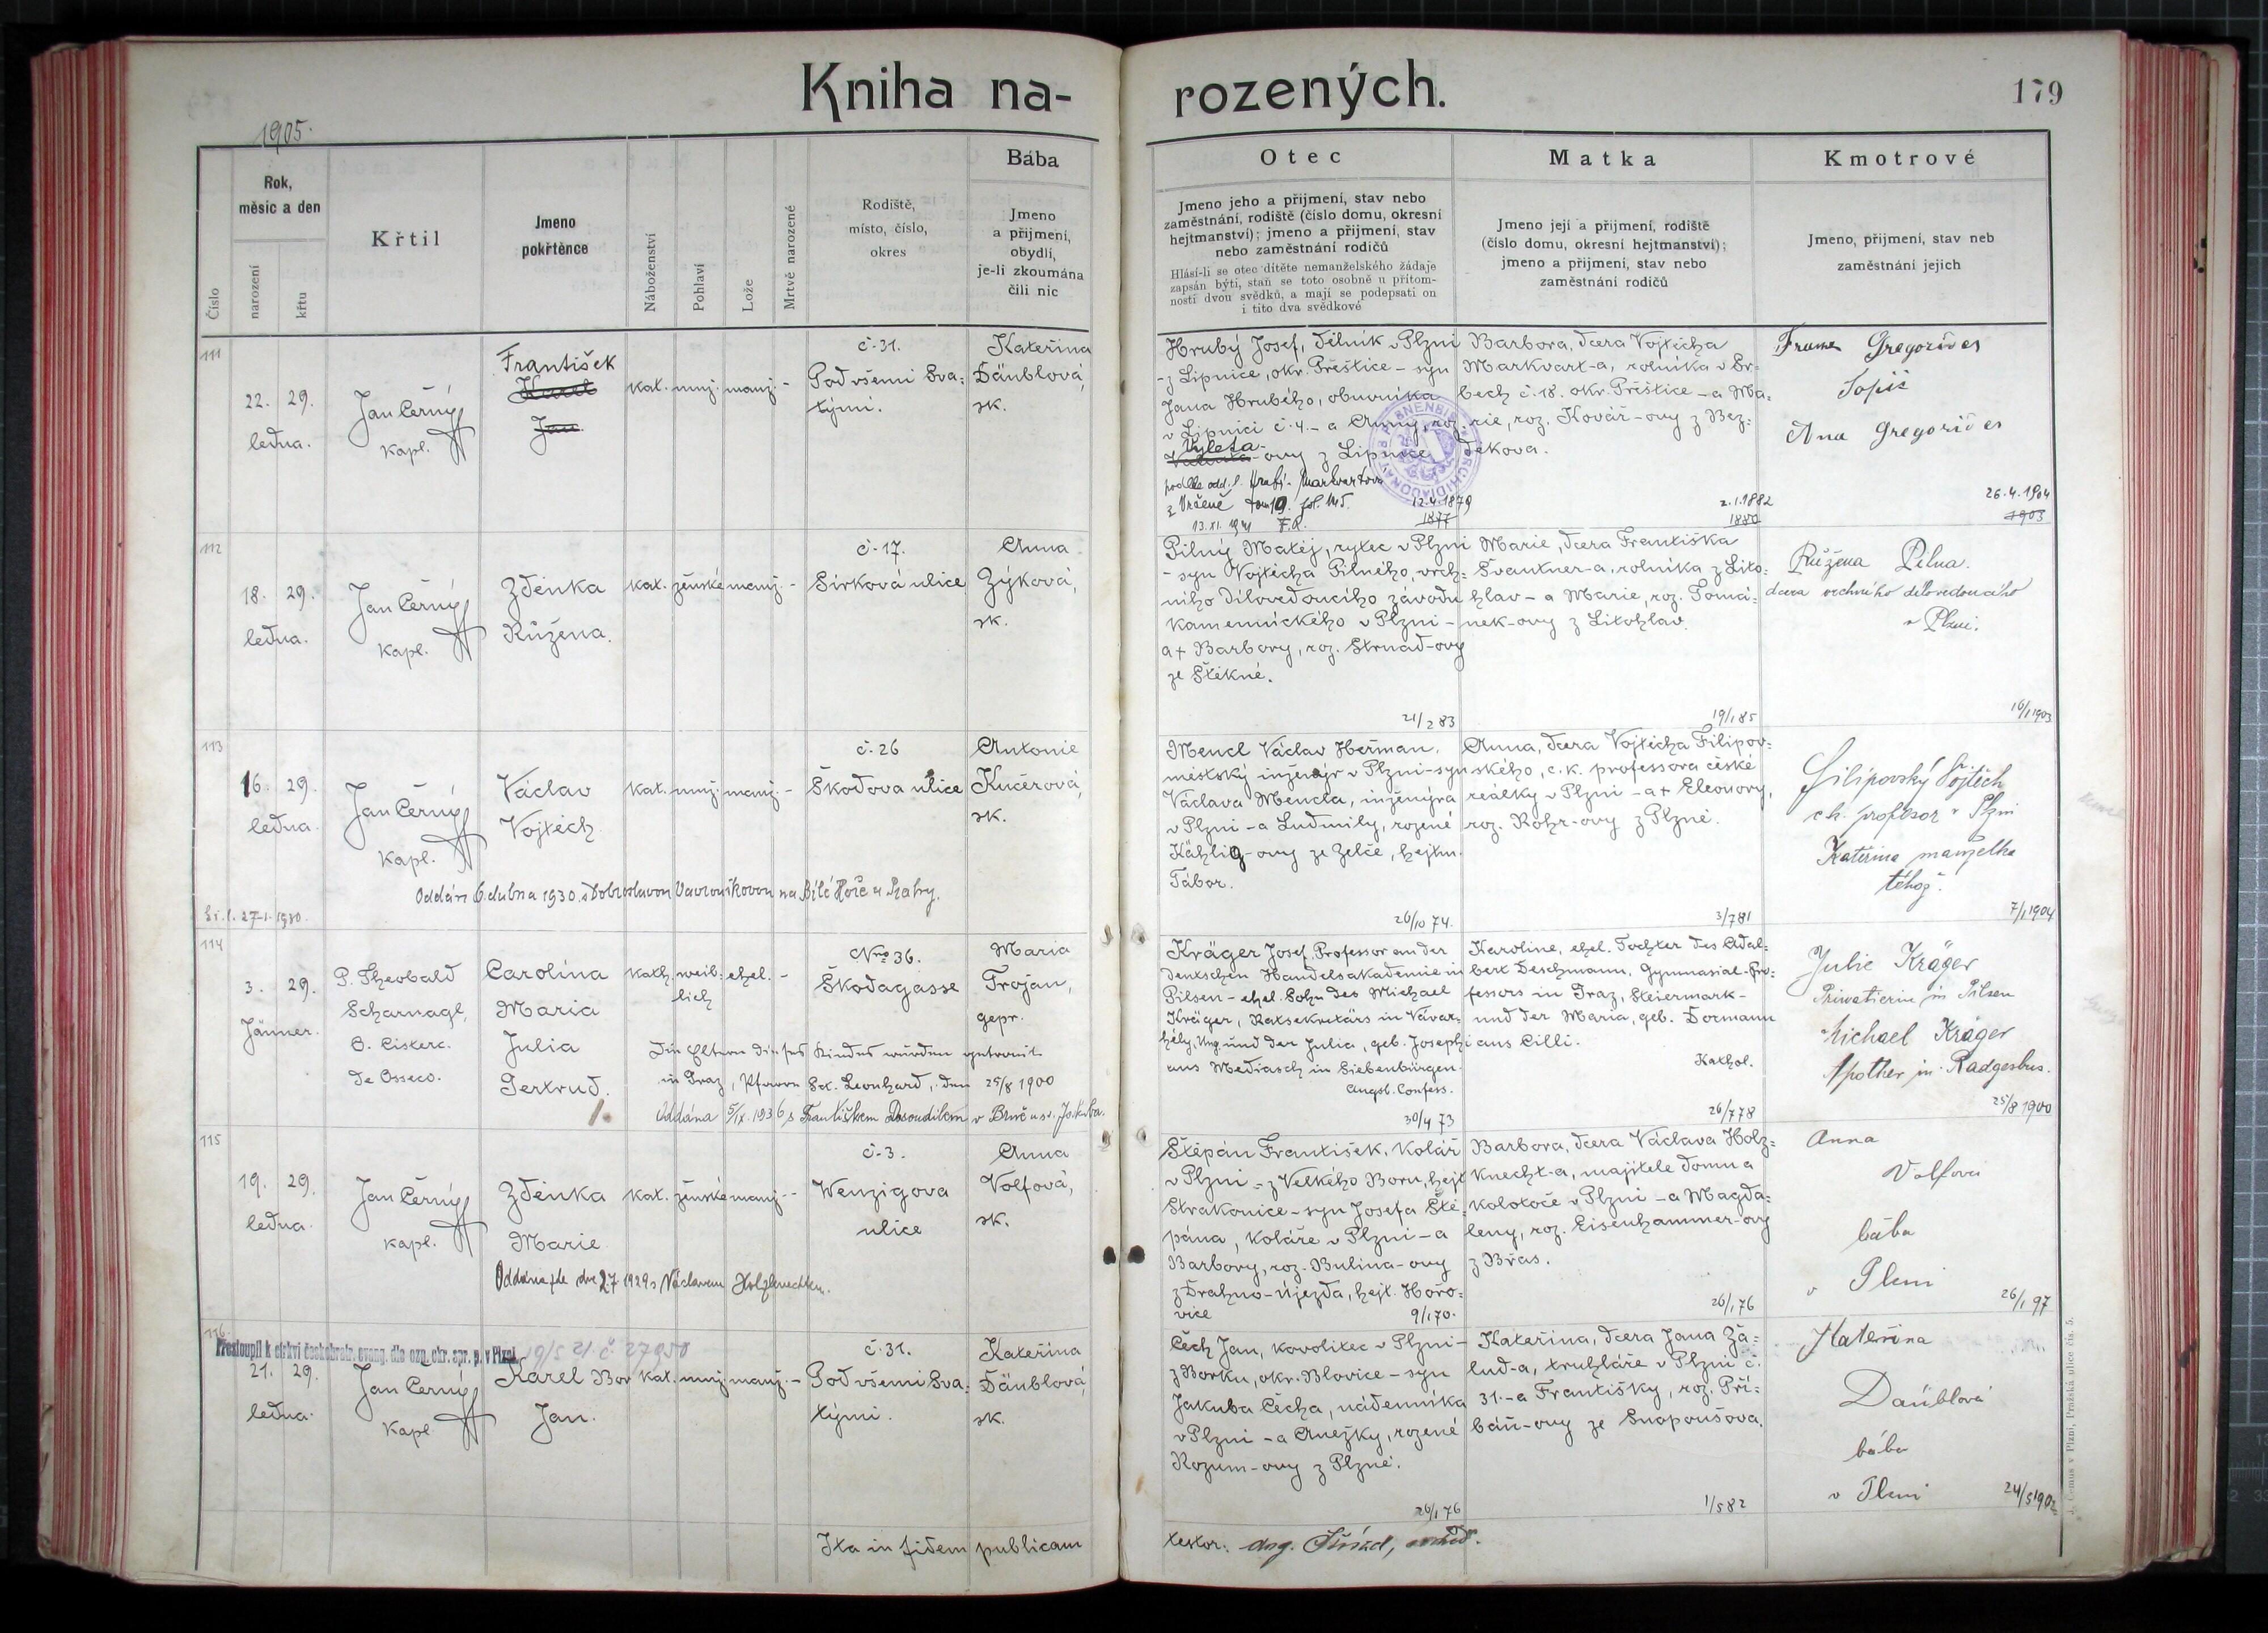 Kniha na-
rozených.
179
1905.
Rok,
měsíc a den
narození
křtu
Číslo
Křtil
Jmeno
pokřtěnce
Náboženství
Pohlaví
Lože
Mrtvě narozené
Rodiště,
místo, číslo,
okres
Bába
Jmeno
a přijmení,
obydlí,
je-li zkoumána
čili nic
Otec
Jmeno jeho a přijmení, stav nebo
zaměstnání, rodiště (číslo domu, okresní
hejtmanství); jmeno a přijmení, stav
nebo zaměstnání rodičů
Hlásí-li se otec dítěte nemanželského žádaje
zapsán býti, staň se toto osobně u přítom-
nosti dvou svědků, a mají se podepsati on
i tito dva svědkové
Matka
Jmeno její a přijmení, rodiště
(číslo domu, okresní hejtmanství);
jmeno a přijmení, stav nebo
zaměstnání rodičů
Kmotrové
Jmeno, přijmení, stav neb
zaměstnání jejich
111
22. 29.
ledna.
Jan Černý
kapl.
František
Karel
Jan
kat. muž. manž. -
č. 31.
Pod všemi Sva=
tými.
Kateřina
Däublová,
zk.
Hrubý Josef, dělník v Plzni
- z Lipnice, okr. Přeštice - syn
Jana Hrubého, obuvníka
v Lipnici č. 4. - a Anny, roz.
Vyleta-
-ovy z Lipnice
13.XI. 1941
12.4.1879
1877
Barbora, dcera Vojtěcha
Markvart-a, rolníka v Br-
bech č. 18. okr. Přeštice - a Ma=
rie, roz. Kovář-ovy z Bez=
děkova.
2.1.1882
1880
Gregorič es
Ana Gregorič es
26.4.1904
1903
112
18. 29.
ledna.
Jan Černý
kapl.
Zdenka
Růžena.
kat. ženské manž. -
č. 17.
Sirková ulice
Anna
Zýková,
zk.
Pilný Matěj, rytec v Plzni
- syn Vojtěcha Pilného, vrch=
ního dílovedoucího závodu
kamenického v Plzni -
a + Barbory, roz. Strnad-ovy
ze Štěkně.
21/2 83
Marie, dcera Františka
Švantner-a, rolníka z Lito=
hlav - a Marie, roz. Tomá=
nek-ovy z Litohlav.
19/1 85
Růžena Pilna.
dcera vrchního dílovedoucího
v Plzni.
16/1 1903
113
16. 29.
ledna.
Jan Černý
kapl.
Václav
Vojtěch
kat. muž. manž. -
č. 26
Škodova ulice
Antonie
Kučerová,
zk.
Oddán 6. dubna 1930. s Dobroslavou Vavrouškovou na Bílé Hoře u Prahy.
27-1-1930.
Mencl Václav Heřman,
městský inženýr v Plzni - syn
Václava Mencla, inženýra
v Plzni - a Ludmily, rozené
Kählig-ovy ze Želče, hejtm.
Tábor.
26/10 74.
Anna, dcera Vojtěcha Filipov=
ského, c. k. professora české
reálky v Plzni - a + Eleonory,
roz. Rohr-ovy z Plzně.
3/7 81
Filipovský Vojtěch
c. k. profesor v Plzni
Kateřina manželka
téhož.
7/1 1904
114
3. 29.
Jänner.
P. Theobald
Scharnagl,
O. Cisterc.
de Osseco.
Carolina
Maria
Julia
Gertrud.
kath. weib= ehel. -
lich
Nro 36.
Škodagasse
Maria
Trojan,
gepr.
Die Eltern dieses Kindes wurden getraut
in Graz, Pfarre Sct. Leonhard, den 25/8 1900
Oddána 5/IX. 1936 s Františkem Dosoudilem v Brně u sv. Jakuba.
Kräger Josef, Professor an der
deutschen Handelsakademie in
Pilsen - ehel. Sohn des Michael
Kräger, Ratsekretärs in Vávár-
hély, Ung. und der Julia, geb. Josephi
aus Mediasch in Siebenbürgen.
Augsb. Confess.
30/4 73
Karoline, ehel. Tochter des Adal=
bert Deschmann, Gymnasial-Pro=
fessors in Graz, Steiermark -
und der Maria, geb. Dormann
aus Cilli.
Kathol.
26/7 78
Julie Kräger
Privatierin in Pilsen
Michael Kräger
25/8 1900
115
19. 29.
ledna.
Jan Černý
kapl.
Zdenka
Marie
kat. ženské manž. -
č. 3.
Wenzigova
ulice
Anna
Volfová,
zk.
Štěpán František, kolář
v Plzni - z Velkého Boru, hejt.
Strakonice - syn Josefa Ště=
pána, koláře v Plzni - a
Barbory, roz. Bulina-ovy
z Drahno-Újezda, hejt. Hořo-
vice
9/1 70.
Barbora, dcera Václava Holz=
knecht-a, majitele domu a
kolotoče v Plzni - a Magda=
leny, roz. Eisenhammer-ovy
z Břas.
26/1 76
Anna
Volfova
bába
v Plzni
26/1 97
116.
Přestoupil k církvi českobratr. evang. dle ozn. okr. spr. p. v Plzni 19/5 21 č. 27950
21. 29.
ledna.
Jan Černý
kapl
Karel Bor
Jan.
kat. muž. manž. -
č. 31.
Pod všemi Sva=
tými.
Kateřina
Däublová,
zk.
Čech Jan, kovolitec v Plzni -
z Borku, okr. Blovice - syn
Jakuba Čecha, nádenníka
v Plzni - a Anežky, rozené
Rozum-ovy z Plzně.
26/1 76
Kateřina, dcera Jana Ža=
lud-a, truhláře v Plzni č.
31. - a Františky, roz. Při=
báň-ovy ze Snopoušova.
1/5 82
Kateřina
Daüblová
bába
v Plzni
24/5 1902
Ita in fidem publicam
testor: